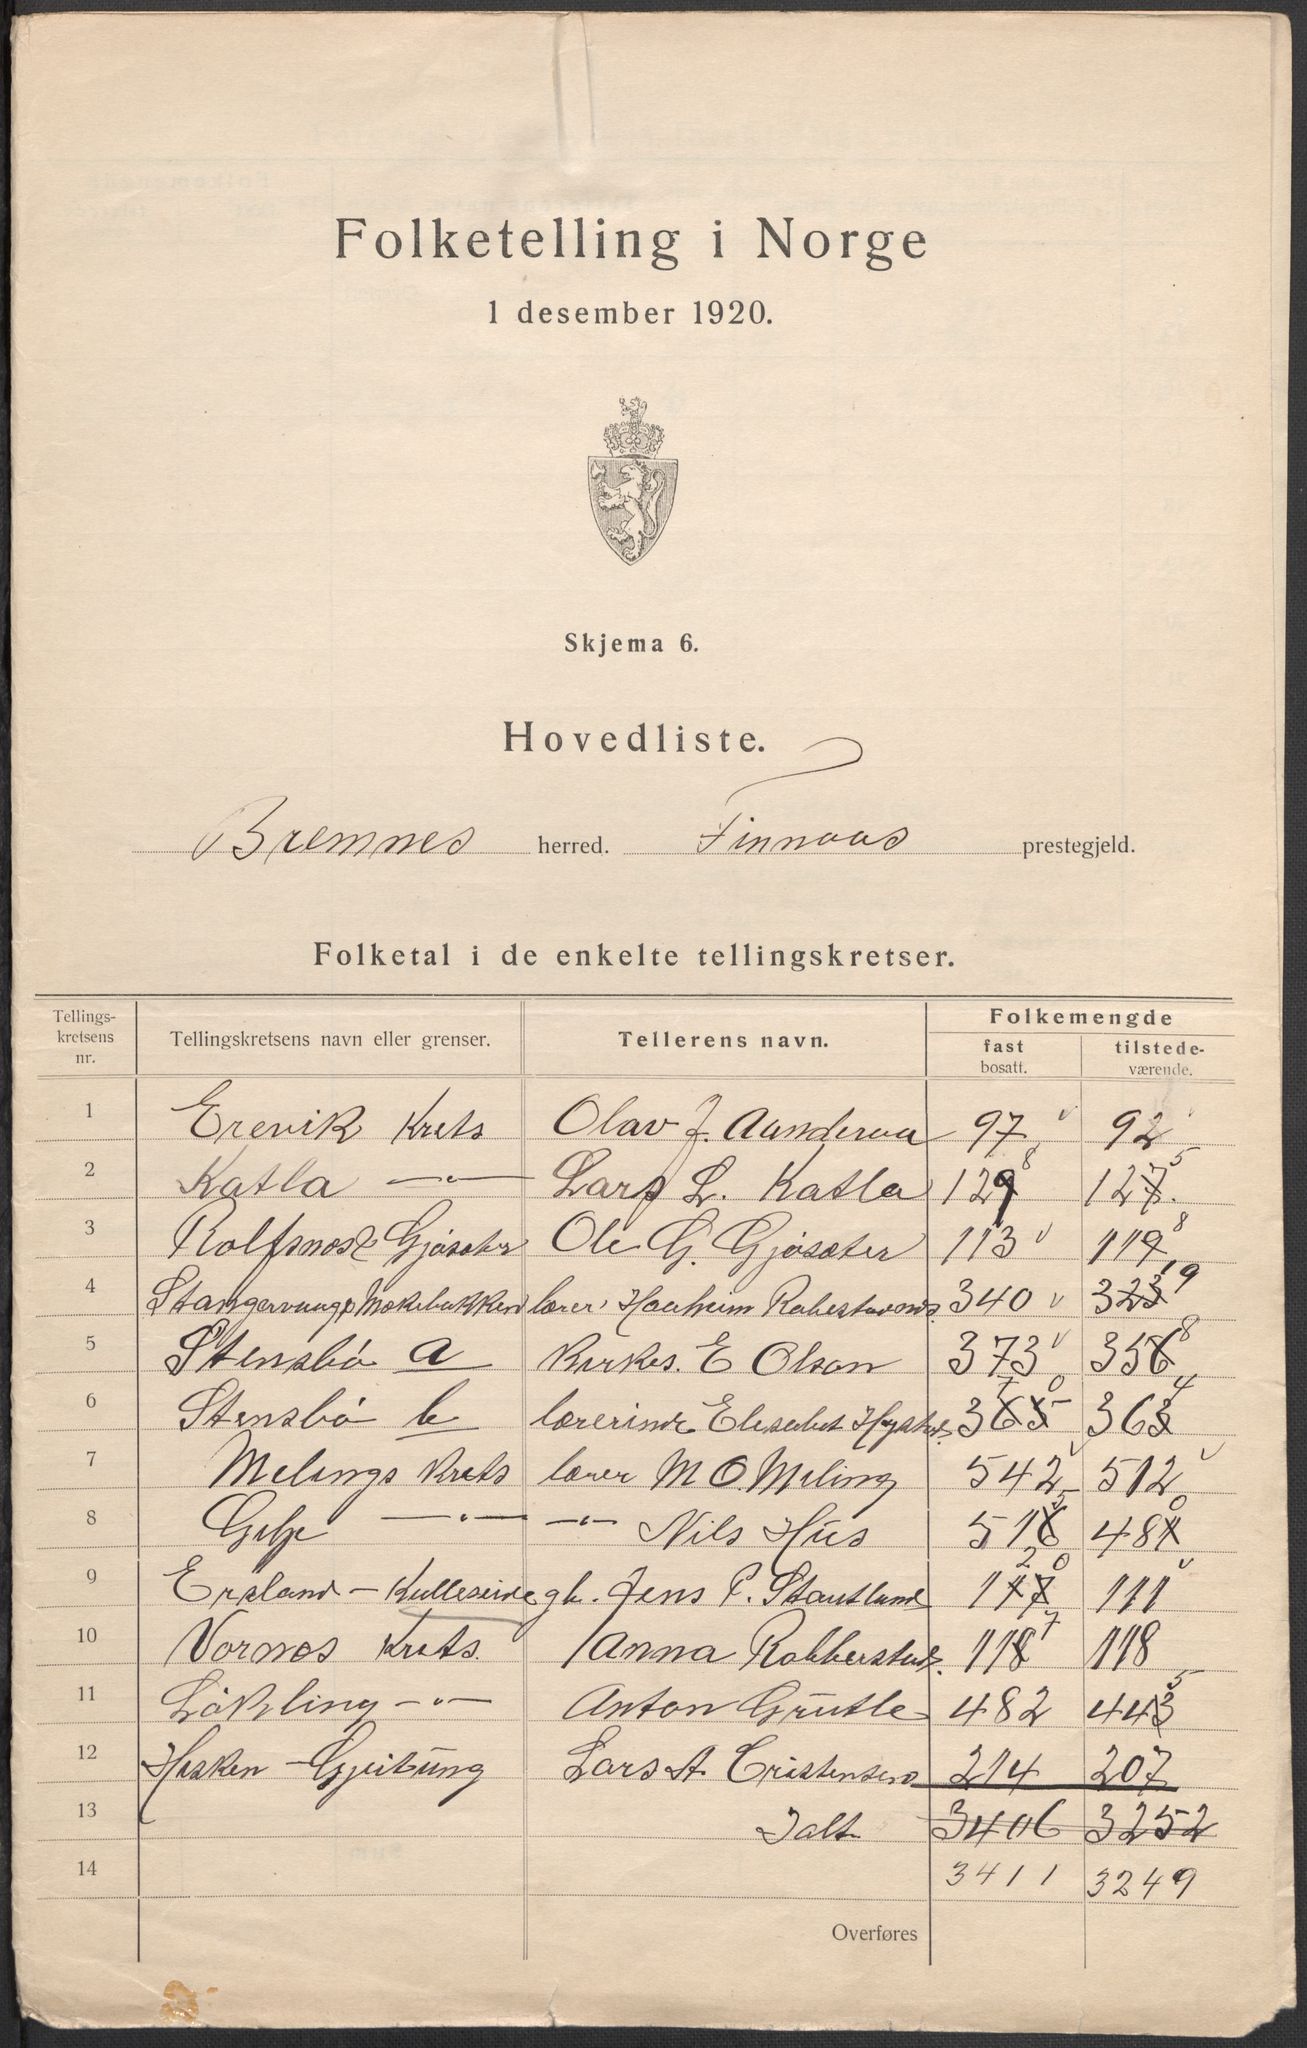 Folketelling i Norge
1 desember 1920.
Skjema 6.
Hovedliste.
Bremnes herred. Finnaas prestegjeld.
Folketal i de enkelte tellingskretser.
Tellings-kretsens nr. Tellingskretsens navn eller grenser. Tellerens navn. Folkemengde fast bosatt. tilstede-værende.
1 Erevik Krets Olav J. Aanderaa 97 92
2 Katla —"— Lars L. Katla 129 8 127 5
3 Rolfsnes & Gjøsæter Ole G. Gjøsæter 113 119 8
4 Stangervaag & Møkebakken lærer 340 323 19
5 Stensbø a Kirkes. E Olson 373 356 8
6 Stensbø b lærerinde Elisabet 365 70 363 4
7 Melings Krets lærer M O. Meling 542 512
8 —"— —"— Nils Hus 516 5 481 0
9 Ersland - Kulleseid gb. Jens P. Stautland 117 20 111
10 Vornes Krets. Anna Robberstad. 118 7 118
11 Løkling —"— Anton Grutle 482 443 5
12 Hisken - Gjeitung Lars A. Cristensen 214 207
13 Ialt 3406 3252
14 3411 3249
Overføres